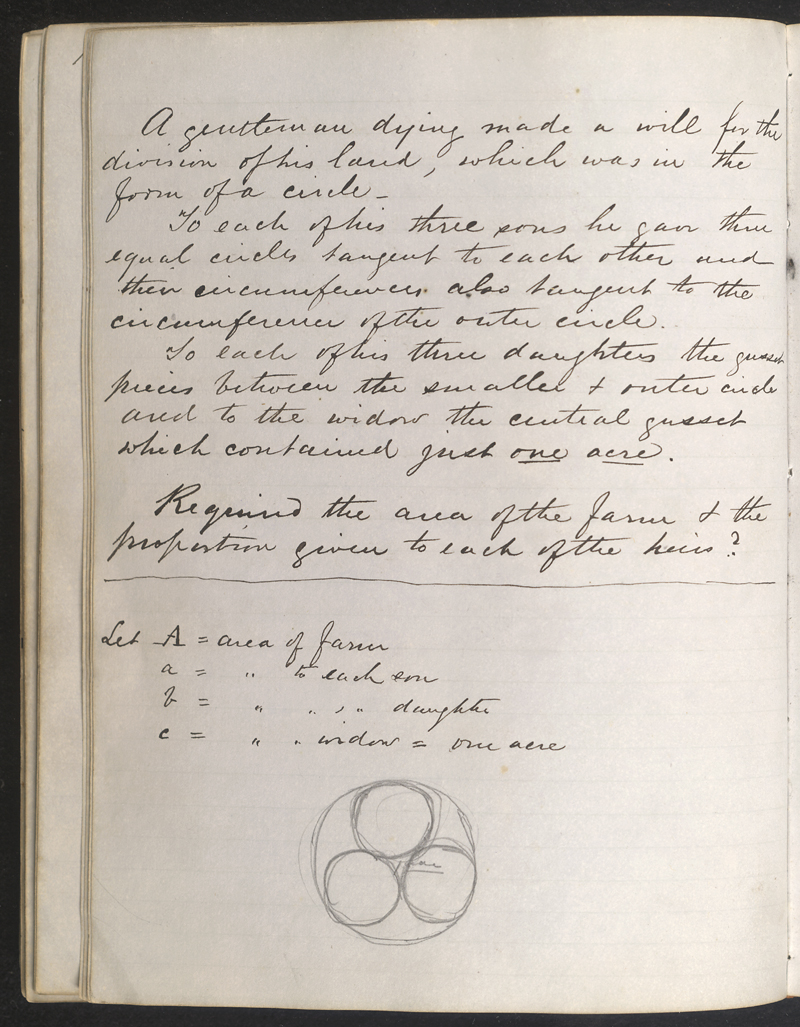 A gentleman dying made a will for the
division of his land, which was in the
form of a circle -
To each of his three sons he gave three
equal circles tangent to each other and
their circumferences also tangent to the
circumference of the outer circle.
To each of his three daughters the gusset
pieces between the smaller + outer circle
and to the widow the central gusset
which contained just one acre.
Required the area of the farm + the
proportion given to each of the heirs?
Let A = area of farm
a = " to each son
b = " " " " daughter
c = " " widow = one acre